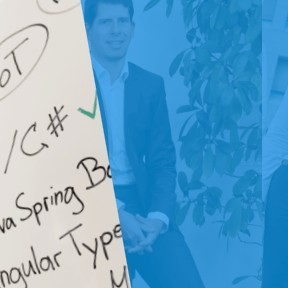 oT
/C#
va Spring Bo
ngular Type
M